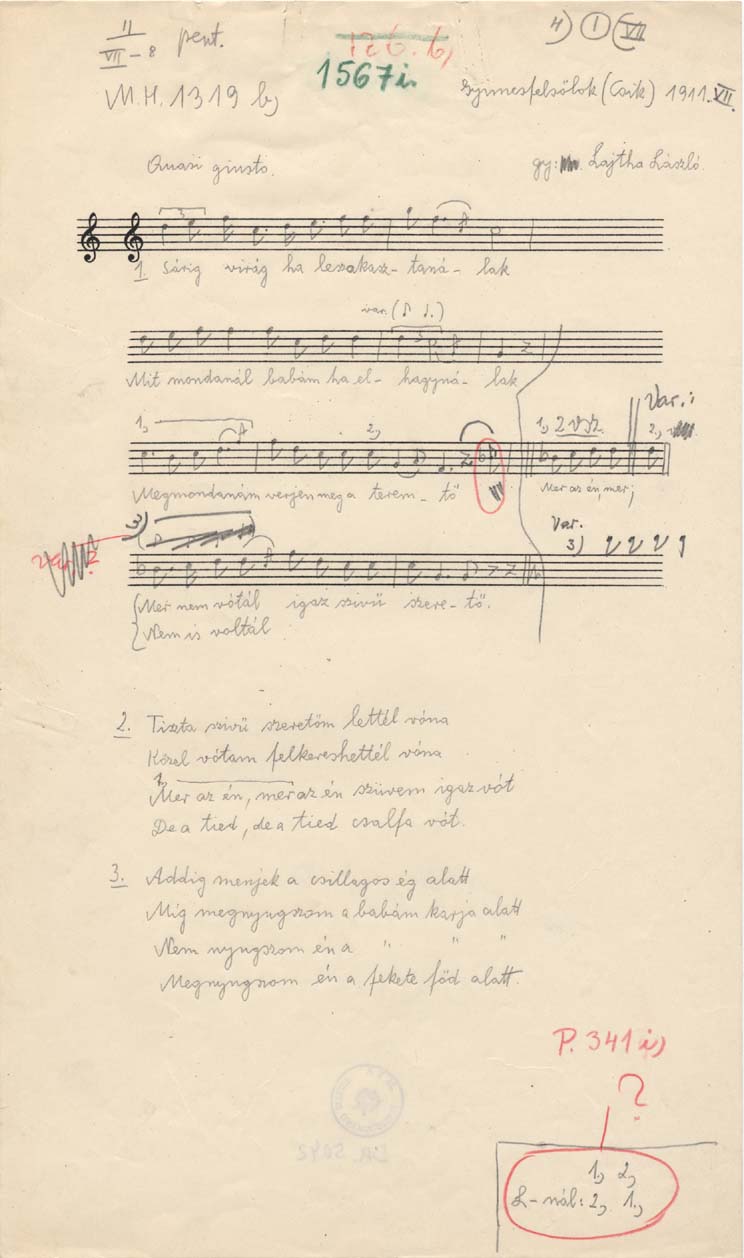 II
VII-8 pent.
126. b)
4) I VII
1567i.
M.H. 1319 b)
Gyimesfelsőlok (Csik) 1911. VII.
Quasi giusto.
gy: Lajtha László.
3
1. Sárig virág ha leszakasz- taná- lak
var. ( )
3
Mit mondanál babám ha el- hagyná- lak
1,
2,
1, 2 vsz.
Var.:
2,
Megmondanám verjen meg a terem- tő
Mer az én, mer;
3)
Var.
3)
Mer nem vótál igaz szivü szere- tő.
Nem is voltál
2. Tiszta szivü szeretőm lettél vóna
Közel vótam felkereshettél vóna
1,
Mer az én, mer az én szüvem igaz vót
De a tied, de a tied csalfa vót.
3. Addig menjek a csillagos ég alatt
Míg megnyugszom a babám karja alatt
Nem nyugszom én a " " "
Megnyugszom én a fekete föd alatt.
P. 341 i)
?
1, 2,
L-nál: 2, 1,